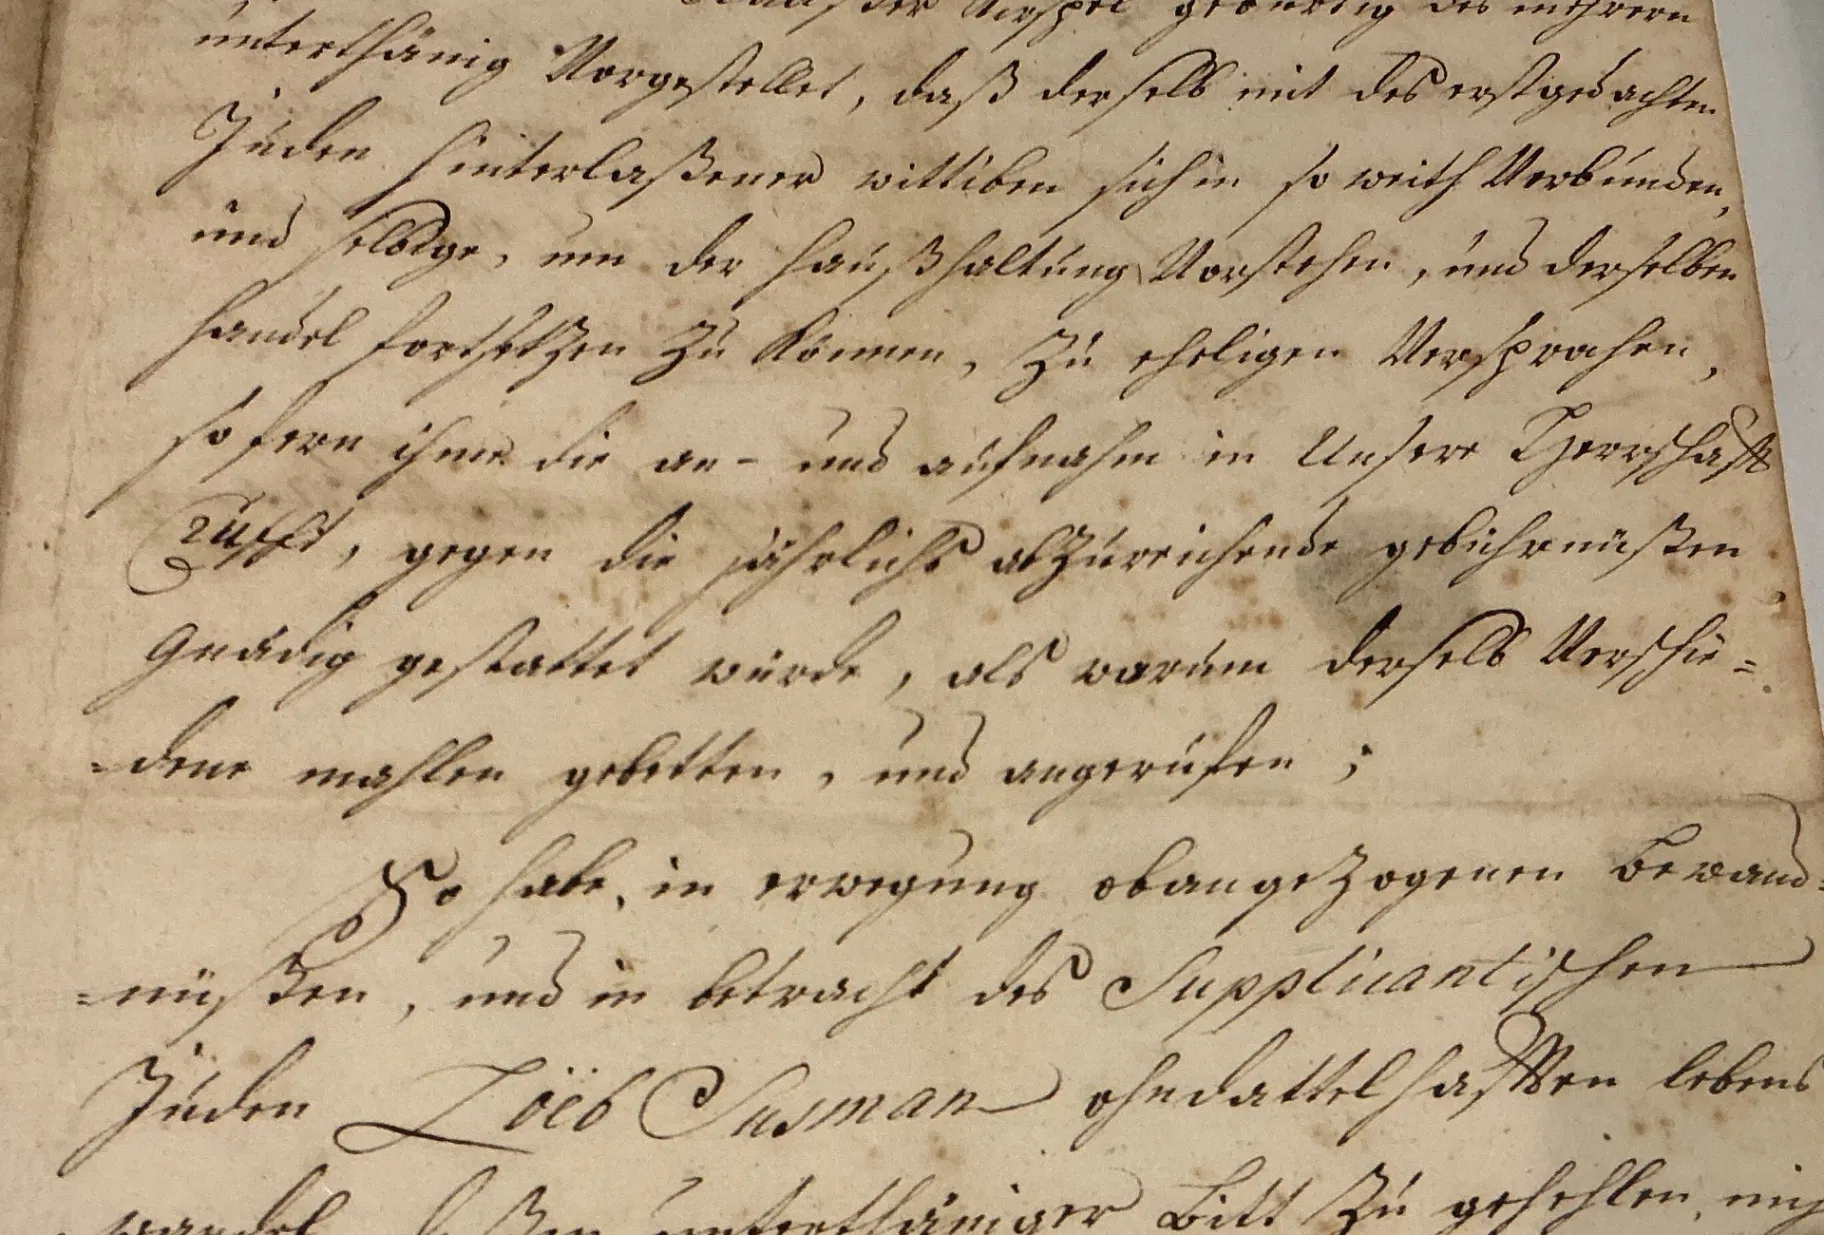 Kirspel gebürtig des mehrern
unterthänig Vorgestellet, daß derselb mit des erstgedachten
Juden hinterlaßener wittiben sich in so weith Verbunden,
und selbige, um der haußhaltung Vorstehen, und derselben
handel fortsetzen zu können, zu eheligen Versprochen,
so fern ihme die an- und aufnahm in Unsere Herrschafft
Crufft, gegen die jährlichs abzureichende gebührnüßen
Gnädig gestattet würde, als warum derselb Verschie=
=dene mahlen gebetten, und angerufen;
So habe, in erwegung obangezogenen bewand=
=nüßen, und in betracht des Supplicantischen
Juden Löeb Susman ohndattelhafften lebens
wandel unterthäniger bitt zu gefehlen